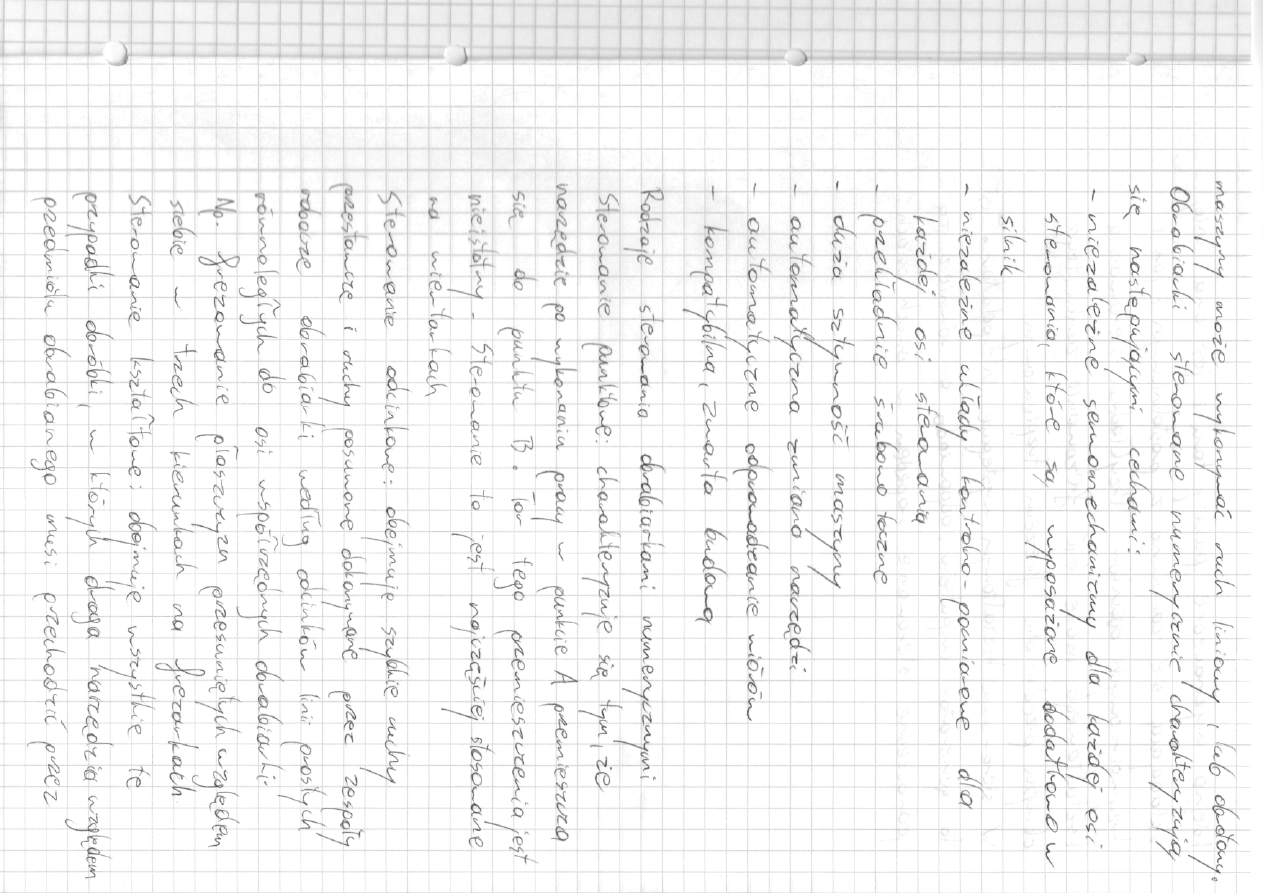 maszyny może wykonywać ruch liniowy, lub obrotowy.
Obrabiarki sterowane numerycznie charakteryzują
się następującymi cechami:
- niezależne serwomechanizmy dla każdej osi
sterowania, które są wyposażone dodatkowo w
silnik
- niezależne układy kontrolno-pomiarowe dla
każdej osi sterowania
- przekładnie śrubowo toczne
- duża sztywność maszyny
- automatyczna zmiana narzędzi
- automatyczne odprowadzanie wiórów
- kompatybilna, zwarta budowa
Rodzaje sterowania obrabiarkami numerycznymi
Sterowanie punktowe: charakteryzuje się tym, że
narzędzie po wykonaniu pracy w punkcie A przemieszcza
się do punktu B. Tor tego przemieszczenia jest
nieistotny. Sterowanie to jest najczęściej stosowane
na wiertarkach
Sterowanie odcinkowe: obejmuje szybkie ruchy
przestawcze i ruchy posuwowe dokonywane przez zespoły
robocze obrabiarki według odcinków linii prostych
równoległych do osi współrzędnych obrabiarki.
Np. frezowanie płaszczyzn przesuniętych względem
siebie w trzech kierunkach na frezarkach
Sterowanie kształtowe: obejmuje wszystkie te
przypadki obróbki, w których droga narzędzia względem
przedmiotu obrabianego musi przechodzić przez